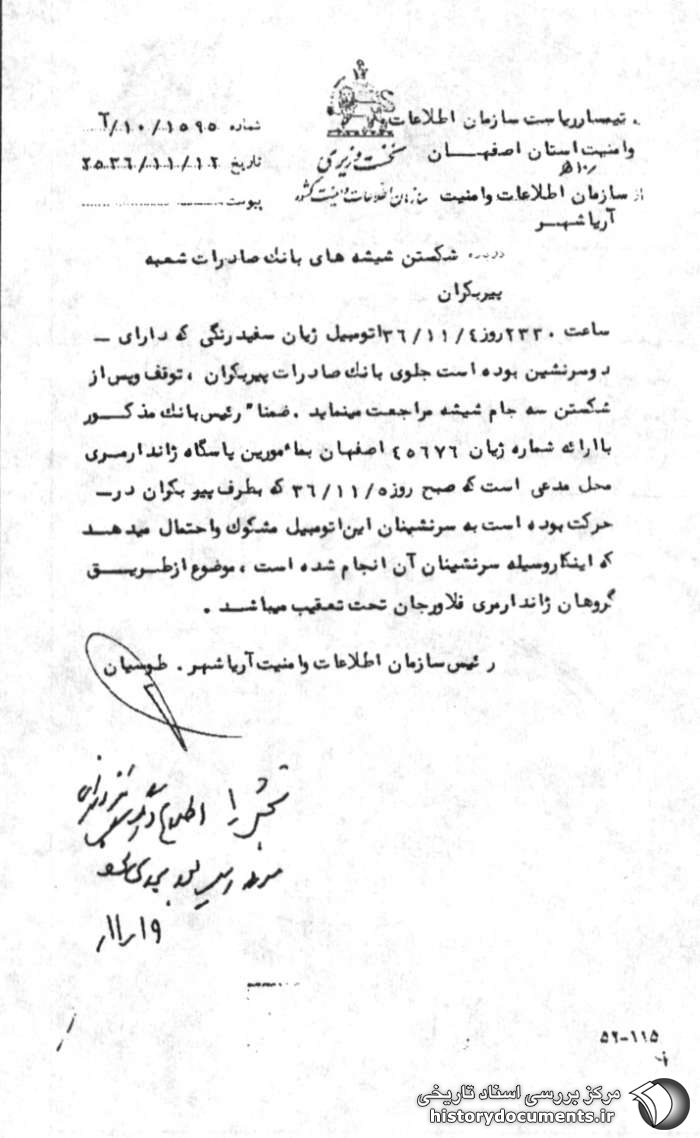 تیمسار ریاست سازمان اطلاعات
وامنیت استان اصفهان
نخست وزیری
از سازمان اطلاعات وامنیت
سازمان اطلاعات و امنیت کشور
آریاشهر
شماره ۱۵۹۵/۱۰/۶
تاریخ ۲۵۳۶/۱۱/۱۲
پیوست
درباره شکستن شیشه های بانك صادرات شعبه
پیربکران
ساعت ۲۳۳۰ روز ۳۶/۱۱/٤ اتومبیل ژیان سفیدرنگی که دارای –
دوسرنشین بوده است جلوی بانك صادرات پیربکران ، توقف وپس از
شکستن سه جام شیشه مراجعت مینماید . ضمنا" رئیس بانك مذکور
باارائه شماره ژیان ٤٥٦٧٦ اصفهان بماٴمورین پاسگاه ژاندارمری
محل مدعی است که صبح روز ۳۶/۱۱/۵ که بطرف پیربکران در–
حرکت بوده است به سرنشینان این اتومبیل مشکوك واحتمال میدهد
که اینکاروسیله سرنشینان آن انجام شده است ، موضوع ازطریق
گروهان ژاندارمری فلاورجان تحت تعقیب میباشد .
رئیس سازمان اطلاعات وامنیت آریاشهر . طوسیان
را اطلاع
۵۲-۱۱۵
مرکز بررسی اسناد تاریخی
historydocuments.ir